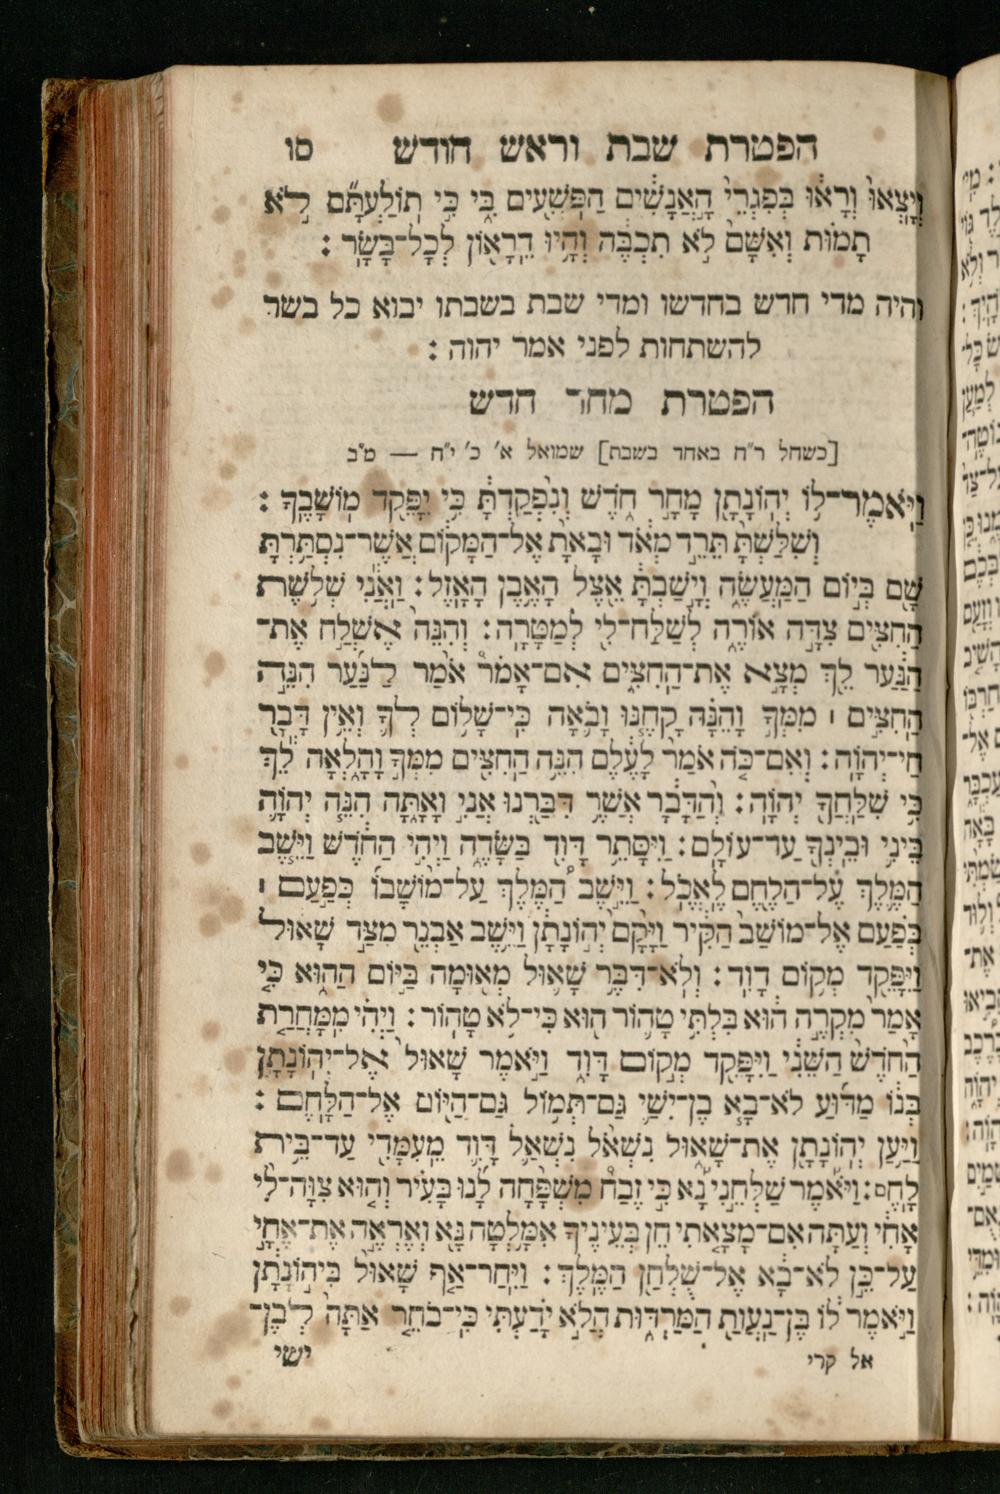 הפטרת שבת וראש חודש סו
וְיָצְאוּ וְרָאוּ בְּפִגְרֵי הָאֲנָשִׁים הַפֹּשְׁעִים בִּי כִּי תוֹלַעְתָּם לֹא
תָמוּת וְאִשָּׁם לֹא תִכְבֶּה וְהָיוּ דֵרָאוֹן לְכָל־בָּשָׂר :
והיה מדי חדש בחדשו ומדי שבת בשבתו יבוא כל בשר
להשתחות לפני אמר יהוה :
הפטרת מחר חדש
[כשחל ר״ח באחד בשבת] שמואל א׳ כ׳ י״ח — מ״ב
וַיֹּאמֶר־לוֹ יְהוֹנָתָן מָחָר חֹדֶשׁ וְנִפְקַדְתָּ כִּי יִפָּקֵד מוֹשָׁבֶךָ :
וְשִׁלַּשְׁתָּ תֵּרֵד מְאֹד וּבָאתָ אֶל־הַמָּקוֹם אֲשֶׁר־נִסְתַּרְתָּ
שָּׁם בְּיוֹם הַמַּעֲשֶׂה וְיָשַׁבְתָּ אֵצֶל הָאֶבֶן הָאָזֶל : וַאֲנִי שְׁלֹשֶׁת
הַחִצִּים צִדָּה אוֹרֶה לְשַׁלַּח־לִי לְמַטָּרָה : וְהִנֵּה אֶשְׁלַח אֶת־
הַנַּעַר לֵךְ מְצָא אֶת־הַחִצִּים אִם־אָמֹר אֹמַר לַנַּעַר הִנֵּה
הַחִצִּים ׀ מִמְּךָ וָהֵנָּה קָחֶנּוּ וָבֹאָה כִּי־שָׁלוֹם לְךָ וְאֵין דָּבָר
חַי־יְהוָֹה : וְאִם־כֹּה אֹמַר לָעֶלֶם הִנֵּה הַחִצִּים מִמְּךָ וָהָלְאָה לֵךְ
כִּי שִׁלַּחֲךָ יְהוָֹה : וְהַדָּבָר אֲשֶׁר דִּבַּרְנוּ אֲנִי וָאָתָּה הִנֵּה יְהוָֹה
בֵּינִי וּבֵינְךָ עַד־עוֹלָם : וַיִּסָּתֵר דָּוִד בַּשָּׂדֶה וַיְהִי הַחֹדֶשׁ וַיֵּשֶׁב
הַמֶּלֶךְ עַל־הַלֶּחֶם לֶאֱכֹל : וַיֵּשֶׁב הַמֶּלֶךְ עַל־מוֹשָׁבוֹ כְּפַעַם ׀
בְּפַעַם אֶל־מוֹשַׁב הַקִּיר וַיָּקָם יְהוֹנָתָן וַיֵּשֶׁב אַבְנֵר מִצַּד שָׁאוּל
וַיִּפָּקֵד מְקוֹם דָּוִד : וְלֹא־דִבֶּר שָׁאוּל מְאוּמָה בַּיּוֹם הַהוּא כִּי
אָמַר מִקְרֶה הוּא בִּלְתִּי טָהוֹר הוּא כִּי־לֹא טָהוֹר : וַיְהִי מִמָּחֳרַת
הַחֹדֶשׁ הַשֵּׁנִי וַיִּפָּקֵד מְקוֹם דָּוִד וַיֹּאמֶר שָׁאוּל אֶל־יְהוֹנָתָן
בְּנוֹ מַדּוּעַ לֹא־בָא בֶן־יִשַׁי גַּם־תְּמוֹל גַּם־הַיּוֹם אֶל־הַלָּחֶם :
וַיַּעַן יְהוֹנָתָן אֶת־שָׁאוּל נִשְׁאֹל נִשְׁאַל דָּוִד מֵעִמָּדִי עַד־בֵּית
לָחֶם : וַיֹּאמֶר שַׁלְּחֵנִי נָא כִּי זֶבַח מִשְׁפָּחָה לָנוּ בָּעִיר וְהוּא צִוָּה־לִי
אָחִי וְעַתָּה אִם־מָצָאתִי חֵן בְּעֵינֶיךָ אִמָּלְטָה נָּא וְאֶרְאֶה אֶת־אֶחָי
עַל־כֵּן לֹא־בָא אֶל־שֻׁלְחַן הַמֶּלֶךְ : וַיִּחַר־אַף שָׁאוּל בִּיהוֹנָתָן
וַיֹּאמֶר לוֹ בֶּן־נַעֲוַת הַמַּרְדּוּת הֲלוֹא יָדַעְתִּי כִּי־בֹחֵר אַתָּה לְבֶן־
אל קרי ישי